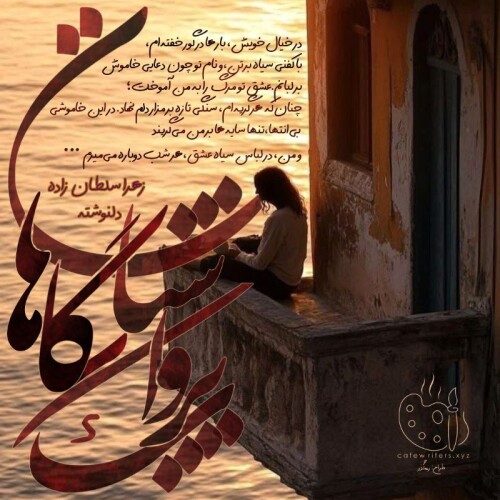 در خیال خویش، بارها در گور خفته‌ام،
با کفنی سیاه بر تن، و نام تو چون دعایی خاموش
بر لبانم. عشق تو مرگ را به من آموخت؛
چنان که هر گریه‌ام، سنگی تازه بر مزار دلم نهاد. در این خاموشی
بی‌انتها، تنها سایه‌ها بر من می‌گریند
و من، در لباس سیاه عشق، هر شب دوباره می‌میرم ...
زهرا سلطان زاده
دلنوشته
cafewriters.xyz